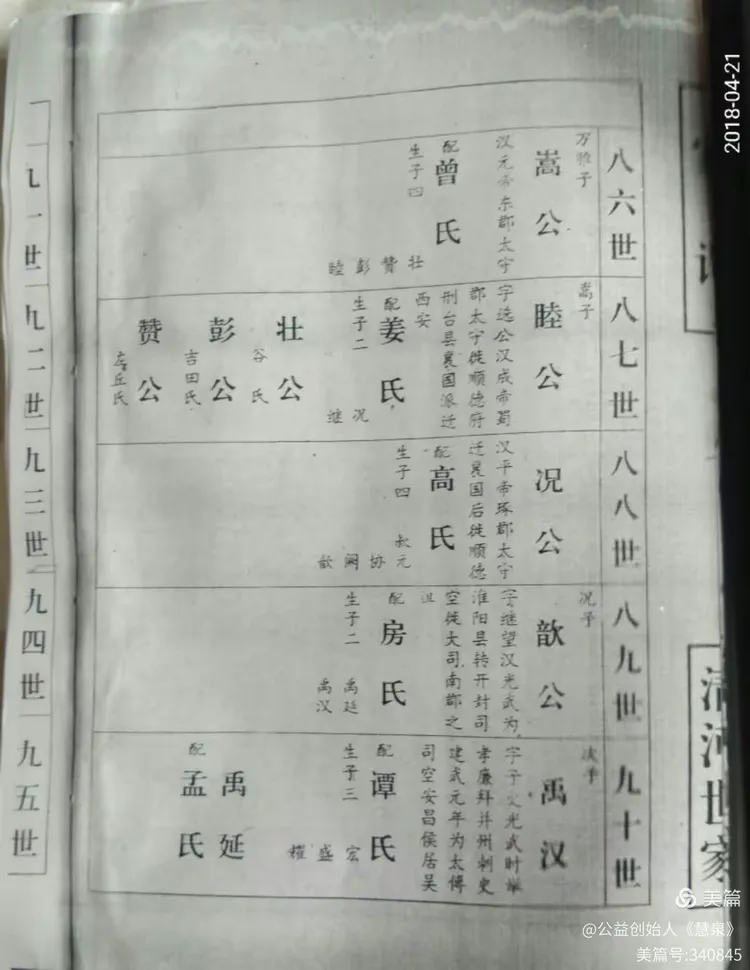 2018-04-21
八六世
万雅子
嵩公
汉元帝东郡太守
配曾氏
生子四
壮 赞 彭 睦
八七世
嵩子
睦公
字选公汉成帝蜀
郡太守徙顺德府
刑台县襄国派迁
西安
配姜氏
生子二
况 继
壮公
谷氏
彭公
吉田氏
赞公
左丘氏
八八世
况公
汉平帝琢郡太守
迁襄国后徙顺德
配高氏
生子四
元 协 阙 歆
八九世
况子
歆公
字继望汉光武为
淮阳县转开封司
空徙大司南郡之
祖
配房氏
生子二
禹廷
禹汉
九十世
禹汉
光武时举
孝廉拜并州刺史
建武元年为太傅
司空安昌侯居吴
配谭氏
生子三
宏 盛 耀
禹延
配孟氏
一世
九二世
九三世
九四世
九五世
清河世家
美篇
@公益创始人《慧泉》
美篇号:340845